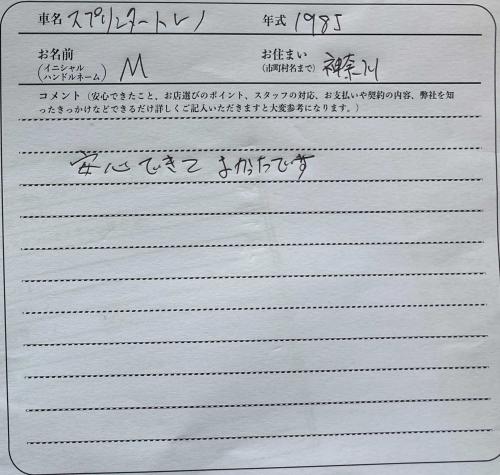 車名 スプリンタートレノ 年式 1985
お名前 (イニシャル ハンドルネーム) M お住まい (市町村名まで) 神奈川
コメント（安心できたこと、お店選びのポイント、スタッフの対応、お支払いや契約の内容、弊社を知
ったきっかけなどできるだけ詳しくご記入いただきますと大変参考になります。）
安心できてよかったです